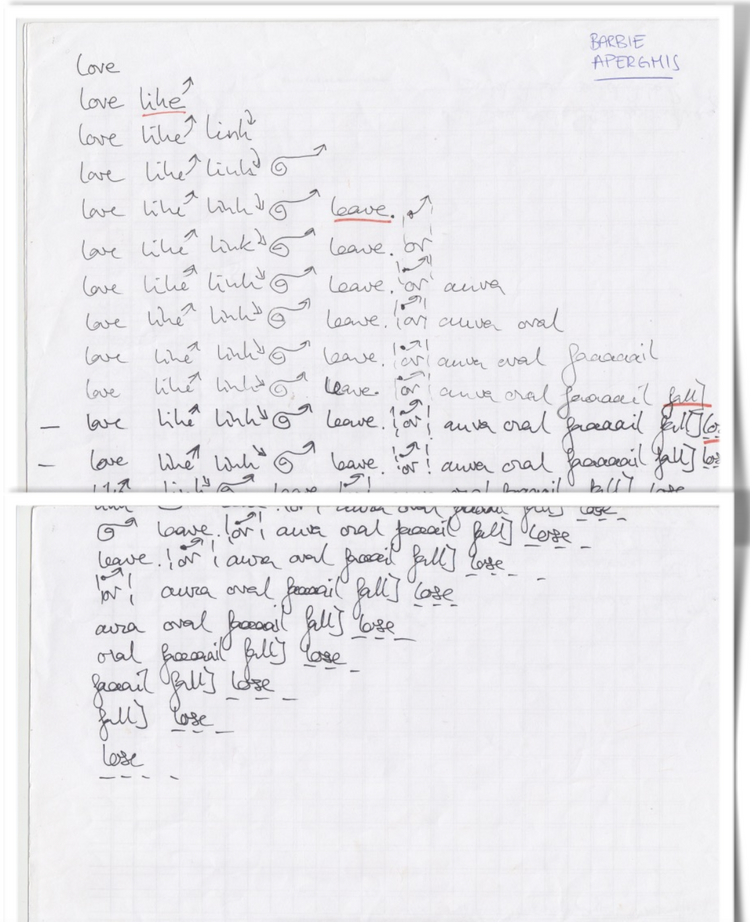 BARBIE
APERGHIS
love
love like
love like link
love like link
love like link leave.
love like link leave. or
love like link leave. or aura
love like link leave. or aura oral
love like link leave. or aura oral faaaaail
love like link leave. or aura oral faaaaail fall]
– love like link leave. or aura oral faaaaail fall] lo
– love like link leave. or aura oral faaaaail fall] lo
link leave. or aura oral faaaaail fall] lose
leave. or aura oral faaaaail fall] lose
leave. or aura oral faaaail fall] lose
or aura oral faaaaail fall] lose
aura oral faaaaail fall] lose
oral faaaaail fall] lose
faaaail fall] lose
fall] lose
lose